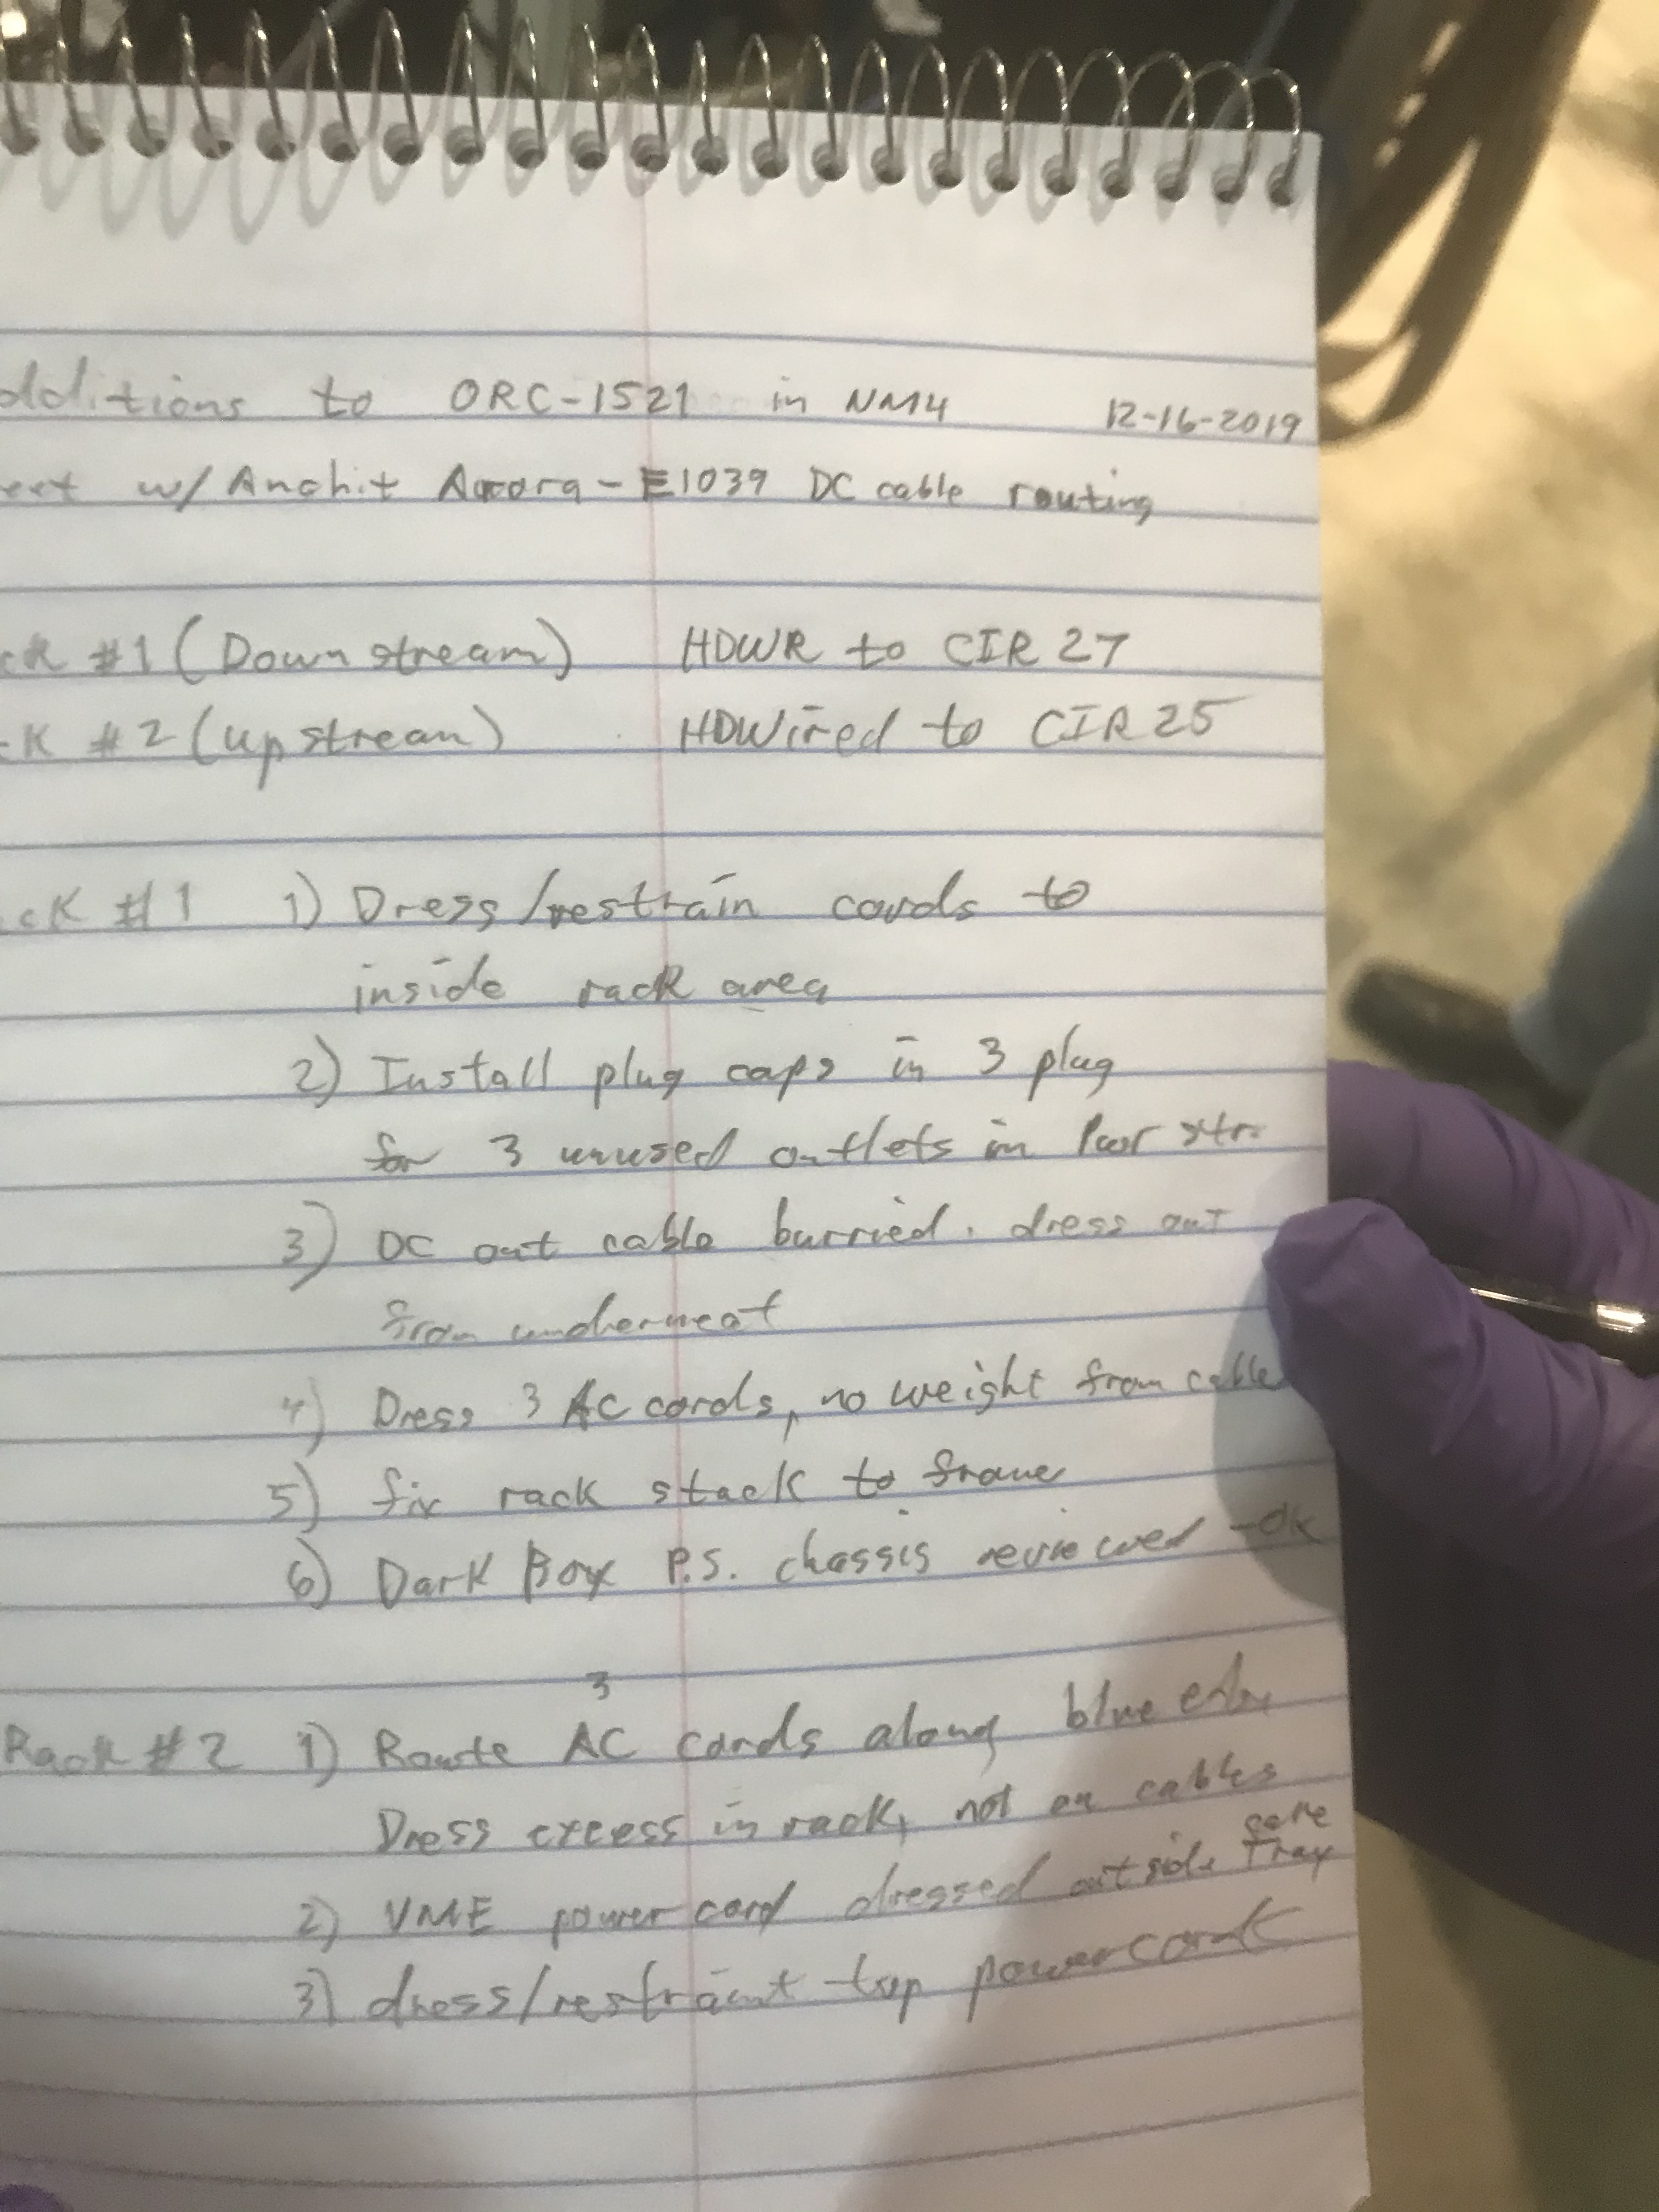 dditions to ORC-1521 in NM4 12-16-2019
eet w/ Anchit Arrora - E1039 DC cable routing
ck #1 (Downstream) HDWR to CIR 27
ck #2 (upstream) HDWired to CIR 25
ck #1 1) Dress/restrain cords to
inside rack area
2) Install plug caps in 3 plug
for 3 unused outlets in Pwr str
3) DC out cable burried. dress out
from underneat
4) Dress 3 AC cords, no weight from cable
5) fix rack stack to frame
6) Dark Box P.S. chassis reviewed - ok
3
Rack #2 1) Route AC cords along blue
Dress excess in rack, not on cables
2) VME power cord dressed outside Tray
3) dress/restraint top power cords